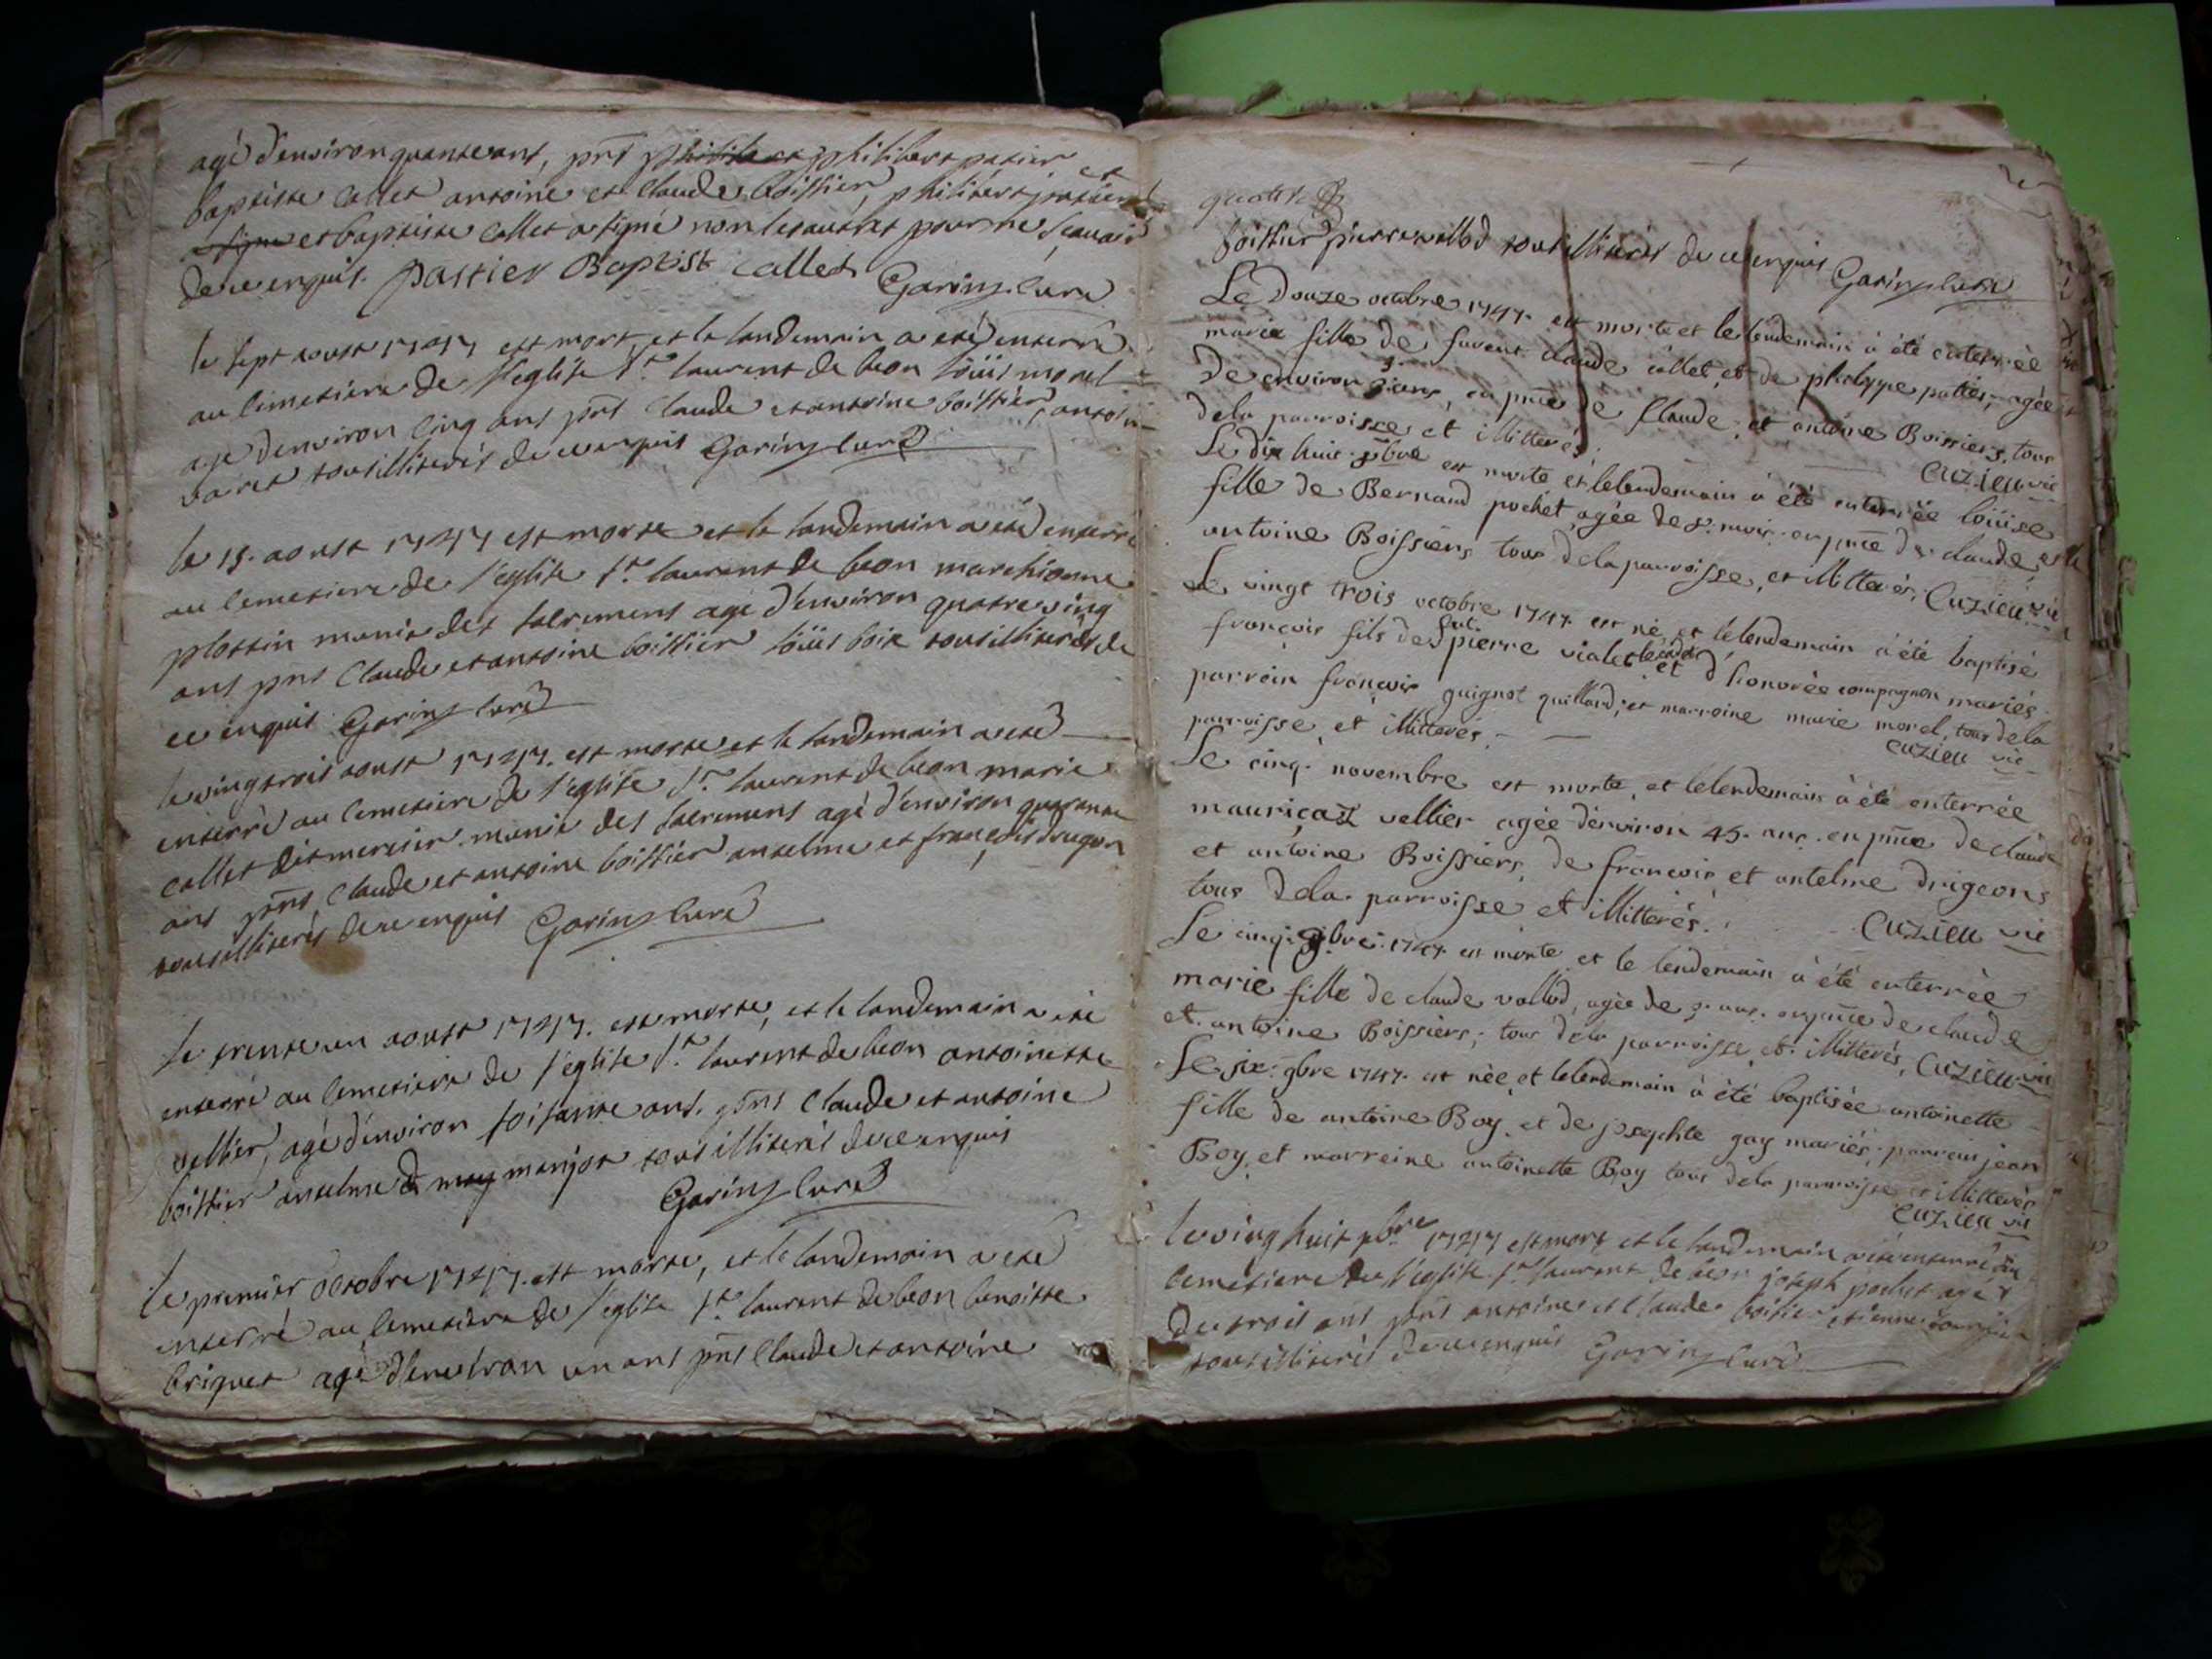 agé d'environ quarante ans, pnts philibert patier et
baptiste collet antoine et claude boissier, philibert patier
et baptiste collet a signé non les autres pour ne scavoir
de ce enquis. pattier Baptist collet Garin curé
le sept aoust 1747 est mort et le landemain a eté enterré
au cimetiere de l'eglise st laurent de beon loüis morel
age denviron cinq ans pnts claude et antoine boissier, antoine
tous illiterés de ce enquis Garin curé
le 15. aoust 1747 est morte et le landemain a eté enterré
au cimetiere de l'eglise st laurent de beon marchionne
plottin munie des sacrements agé d'environ quatre ving
ans pnts claude et antoine boissier loüis boix tous illiterés de
ce enquis Garin curé
le ving trois aoust 1747. est morte et le landemain a eté
enterré au cimetiere de l'eglise st laurent de beon marie
collet dit mercier munie des sacrements agé d'environ quarante
ans pnts claude et antoine boissier anselme et françois drugon
tous illiterés de ce enquis Garin curé
le trente un aoust 1747. est morte, et le landemain a eté
enterré au cimetiere de l'eglise st laurent de beon antoinette
vellier, agé d'environ soisante ans. pnts claude et antoine
boissier anselme manjot tous illiterés de ce enquis
Garin curé
le premier octobre 1747. est morte, et le landemain a eté
enterré au cimetiere de l'eglise st laurent de beon benoitte
briquet agé d'environ un ans pnts claude et antoine
boissier pierre vallod tous illiterés de ce enquis Garin curé
Le Douze octobre 1747. est morte et le lendemain à été enterrée
marie fille de claude collet, et de philippe pattier, agée
de environ 3 ans, en pnce de claude, et antoine Boissiers, tous
dela parroisse et illitterés. Cuzieu vic
Le dix huit est morte et le lendemain à été enterrée loüise
fille de Bernard pochet agée de 8. mois. en pnce de claude, et
antoine Boissiers tous dela parroisse, et illitterés, Cuzieu vic
Le vingt trois octobre 1747. est né, et lelendemain à été baptisé
françois fils de pierre vialet et d'honorée compagnon mariés.
parrein françois guignot guillard, et marraine marie morel, tous dela
parroisse, et illitterés. Cuzieu vic
Le cinq. novembre est morte, et lelendemain à été enterrée
mauriçaz vellier agée d'environ 45. ans. en pnce de claude
et antoine Boissiers, de françois, et antelme drigeons
tous dela parroisse et illitterés. Cuzieu vic
Le cinq. 9bre. 1747. est morte et le lendemain à été enterrée
marie fille de claude vallod, agée de 9. ans. en pnce de claude
et antoine Boissiers, tous dela parroisse, et illitterés, Cuzieu vic
Le six. 9bre 1747. est née, et lelendemain à été baptisée antoinette
fille de antoine Boy, et de josephte gay mariés, parrein jean
Boy, et marreine antoinette Boy tous dela parroisse et illitterés
Cuzieu vic
le ving huit 1747 est mort et le landemain a eté enterré au
cemetiere de l'eglise st laurent de beon joseph pochet agé
de trois ans pnts antoine et claude boissier etienne
tous illiterés de ce enquis Garin curé